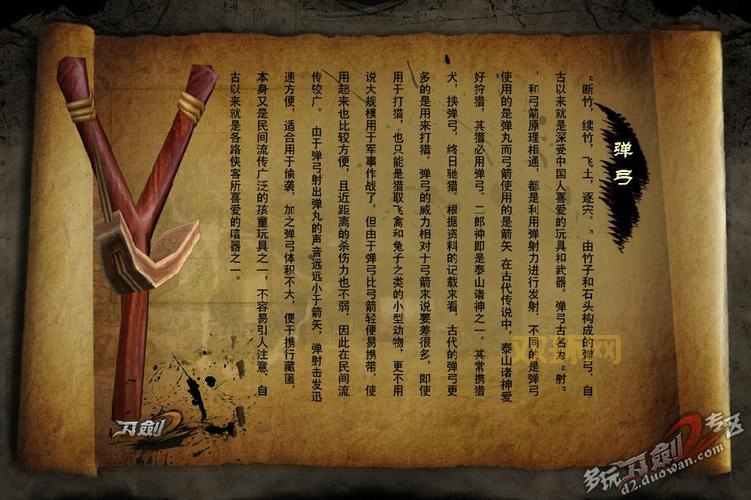 弹弓
“断竹，续竹，飞土，逐宍。”由竹子和石头构成的弹弓，自
古以来就是深受中国人喜爱的玩具和武器。弹弓古名为“射”
，和弓箭原理相通，都是利用弹射力进行发射，不同的是弹弓
使用的是弹丸而弓箭使用的是箭矢 在古代传说中，泰山诸神爱
好狩猎，其猎必用弹弓。二郎神即是泰山诸神之一。其常携猎
犬，挟弹弓，终日驰猎。根据资料的记载来看，古代的弹弓更
多的是用来打猎。弹弓的威力相对于弓箭来说要差很多，即使
用于打猎，也只能是猎取飞禽和兔子之类的小型动物，更不用
说大规模用于军事作战了。但由于弹弓比弓箭轻便易携带，使
用起来也比较方便，且近距离的杀伤力也不弱，因此在民间流
传较广。 由于弹弓射出弹丸的声音远远小于箭矢，弹射击发迅
速方便，适合用于偷袭，加之弹弓体积不大，便于携行藏匿，
本身又是民间流传广泛的孩童玩具之一，不容易引人注意，自
古以来就是各路侠客所喜爱的暗器之一。
刀剑2
多玩刀剑2专区
d2.duowan.com